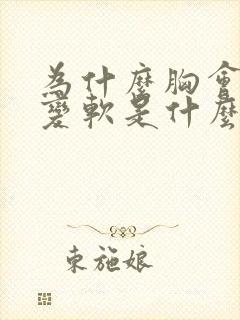 為什麼胸會
變軟是什麼
東施娘